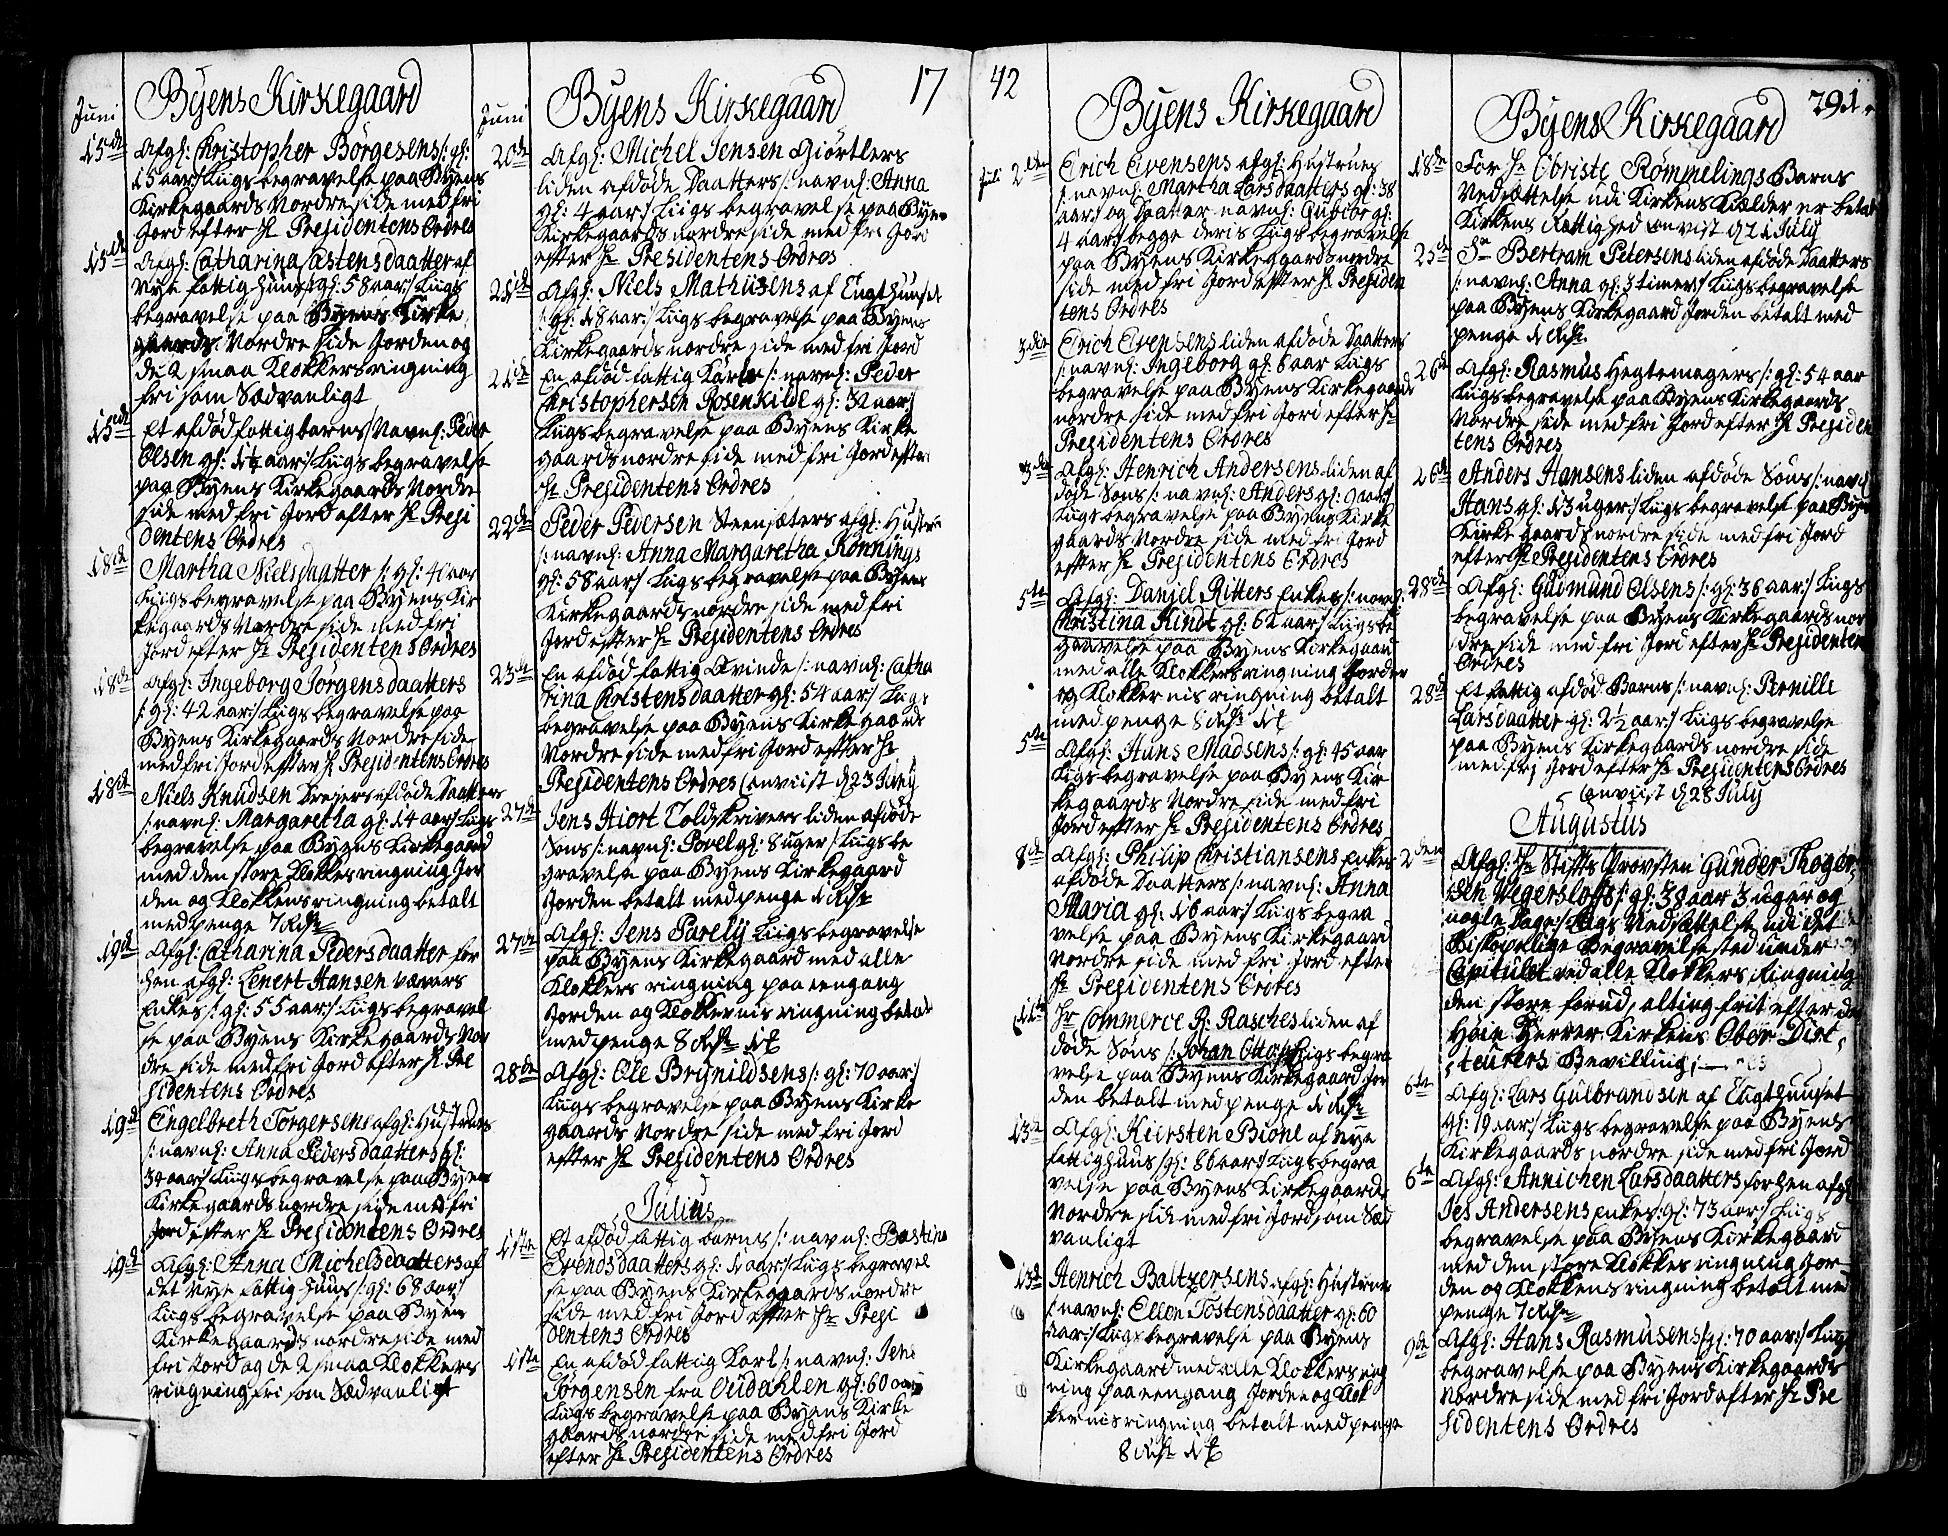 Byens Kirkegaard
Juni
15de Afgl: Christopher Börgesens /: gl:
15 aar:/ Liigs begravelse paa Byens
Kirkegaards Nordre side med fri
Jord efter Hr Presidentens Ordres
15de Afgl: Catharina Castensdaatter af
Nye fattig huus /: gl: 58 aar:/ Liigs
begravelse paa Byens Kirke
gaards Nordre side Jorden og
de 2 smaa Klokkers ringning
fri som Sædvanligt
15de Et afdöd fattig barns /: Navnl: Peder
Olsen gl: 1½ aar:/ Liigs begravelse
paa Byens Kirkegaards Nordre
side med fri Jord efter Hr Presi
dentens Ordres
18de Martha Nielsdaatter /: gl: 40 aar
Liigs begravelse paa Byens Kir
kegaards Nordre side med fri
Jord efter Hr Presidentens Ordres
18de Afgl: Ingeborg Jörgensdaatters
/: gl: 42 aar:/ Liigs begravelse paa
Byens Kirkegaards Nordre side
med fri Jord efter Hr Presidentens Ordres
18de Niels Knudsen Dreyers afdöde Daatters
/: navnl: Margaretha gl: 14 aar:/ Liigs
begravelse paa Byens Kirkegaard
med den store Klokkes ringning Jor
den og Klokkens ringning betalt
med penge 7 Rdr
19de Afgl: Catharina Pedersdaatter for
hen afgl: Lenert Hansen Vævers
Enkes /: gl: 55 aar:/ Liigs begravel
se paa Byens Kirkegaards Nor
dre side med fri Jord efter Hr Pre
sidentens Ordres
19de Engelbreth Torgersens afgl: Hustrues
/: navnl: Anna Pedersdaatters gl:
34 aar:/ Liigs begravelse paa Byens
Kirkegaards nordre side med fri
Jord efter Hr Presidentens Ordres
19de Afgl: Anna Michelsdaatters af
det Nye fattig huus /: gl: 68 aar:/
Liigs begravelse paa Byens
Kirkegaards nordre side med
fri Jord og de 2 smaa Klokkers
ringning fri som Sædvanligt
Byens Kirkegaard 17
Juni
20de Afgl: Michel Jensen Giörtlers
liden afdöde Daatters /: navnl: Anna
gl: 4 aar:/ Liigs begravelse paa Byens
Kirkegaards nordre side med fri Jord
efter Hr Presidentens Ordres
21de Afgl: Niels Mathisens af Tugthuuset
/: gl: 18 aar:/ Liigs begravelse paa Byens
Kirkegaards nordre side med fri Jord
21de En afdöd fattig Karls /: navnl: Peder
Christophersen Rosenkilde gl: 32 aar:/
Liigs begravelse paa Byens Kirke
gaards nordre side med fri Jord efter
Hr Presidentens Ordres
22de Peder Pedersen Steensæters afgl: Hustrue
/: navnl: Anna Margaretha Rönnings
gl: 58 aar:/ Liigs begravelse paa Byens
Kirkegaards nordre side med fri
Jord efter Hr Presidentens Ordres
23de En afdöd fattig Qvinde /: navnl: Catha
rina Christensdaatter gl: 54 aar:/ Liigs
begravelse paa Byens Kirkegaards
Nordre side med fri Jord efter Hr
Presidentens Ordres (anviist d 23 Juny
27de Jens Hiort Toldskrivers liden afdöde
Söns /: navnl: Povel gl: 8 uger:/ Liigs be
gravelse paa Byens Kirkegaard
Jorden betalt med penge 1 Rdr
27de Afgl: Jens Parely Liigs begravelse
paa Byens Kirkegaard med alle
Klokkers ringning paa eengang
Jorden og Klokkernis ringning betalt
med penge 8 Rdr
28de Afgl: Ole Brynildsens /: gl: 70 aar:/
Liigs begravelse paa Byens Kirke
gaards Nordre side med fri Jord
efter Hr Presidentens Ordres
Julius
1ste Et afdöd fattig barns /: navnl: Bastine
Svendsdaatters gl: 1 aar:/ Liigs begravel
se paa Byens Kirkegaards nordre
side med fri Jord efter Hr Presi
dentens Ordres
1ste En afdöd fattig Karl /: navnl: Jens
Jörgensen fra Oudahlen gl: 60 aar
Liigs begravelse paa Byens Kirke
gaards nordre side med fri Jord
efter Hr Presidentens Ordres
42 Byens Kirkegaard
Juli 2den Erich Evensens afgl: Hustrues
/: navnl: Martha Larsdaatters gl: 38
aar:/ og Daatter navnl: Gubior gl:
4 aar:/ begge deris Liigs begravelse
paa Byens Kirkegaards nordre
side med fri Jord efter Hr Presiden
tens Ordres
3die Erich Evensens liden afdöde Daatters
/: navnl: Ingeborg gl: 6 aar Liigs
begravelse paa Byens Kirkegaards
nordre side med fri Jord efter Hr
Presidentens Ordres
3die Afgl: Henrich Andersens liden af
döde Söns /: navnl: Anders gl: 9 aar:/
Liigs begravelse paa Byens Kirke
gaards Nordre side med fri Jord
efter Hr Presidentens Ordres
5te Afgl: Daniel Ritters Enkes /: navnl:
Christina Kindt gl: 62 aar:/ Liigs be
gravelse paa Byens Kirkegaard
med alle Klokkers ringning Jorden
og Klokkernis ringning betalt
med penge 8 Rdr
5te Afgl: Hans Madsens /: gl: 45 aar
Liigs begravelse paa Byens Kir
kegaards Nordre side med fri
Jord efter Hr Presidentens Ordres
8de Afgl: Philip Christiansens Enkes
afdöde Daatters /: navnl: Anna
Maria gl: 16 aar:/ Liigs begra
velse paa Byens Kirkegaard
Nordre side med fri Jord efter
Hr Presidentens Ordres
11te Hr Commerce R: Rasches liden af
döde Söns /: Johan Otto:/ Liigs begra
velse paa Byens Kirkegaard Jor
den betalt med penge 1 Rdr
13de Afgl: Kiersten Bione af Nye
fattighuus /: gl: 86 aar:/ Liigs begra
velse paa Byens Kirkegaards
Nordre side med fri Jord som Sæd
vanligt
13de Henrich Baltzersens afgl: Hustrues
/: navnl: Ellen Tostensdaatter gl: 60
aar:/ Liigs begravelse paa Byens
Kirkegaard med alle Klokkers ring
ning paa eengang Jorden og Klok
kernis ringning betalt med penge
8 Rdr
Byens Kirkegaard 291.
18de For Hr Obriste Römmelings Barns
Nedsættelse udi Kirkens Kielder er betalt
Kirkens Rettighed anvist d 21 July
23de Sr Bertram Petersens liden afdöde Daatters
/: navnl: Anna gl: 3 timer:/ Liigs begravelse
paa Byens Kirkegaard Jorden betalt med
penge 1 Rdr
26de Afgl: Rasmus Hegtemagers /: gl: 54 aar
Liigs begravelse paa Byens Kirkegaards
Nordre side med fri Jord efter Hr Presiden
tens Ordres
26de Anders Hansens liden afdöde Söns /: navnl
Hans gl: 13 uger:/ Liigs begravelse paa Byens
Kirkegaards nordre side med fri Jord
efter Hr Presidentens Ordres
28de Afgl: Gudmund Olsens /: gl: 36 aar:/ Liigs
begravelse paa Byens Kirkegaards nor
dre side med fri Jord efter Hr Presidentens
Ordres
28de Et fattig afdöd Barns /: navnl: Pernille
Larsdaatter gl: 2½ aar:/ Liigs begravelse
paa Byens Kirkegaards nordre side
med fri Jord efter Hr Presidentens Ordres
anviist d 28 July
Augustus
2den Afgl: Hr Stifts Provsten Gunder Thoger
sen Wegersloffs /: gl: 38 aar 3 uger og
nogle dage:/ Liigs Nedsættelse udi det
Biskopelige Begravelse sted under
Capitulet ved alle Klokkers Ringning
den store forud, alting frit efter de
Höie Herrer Kirkens Ober Direc
teurers Bevilling;
6te Afgl: Lars Gulbrandsen af Tugthuuset
gl: 19 aar:/ Liigs begravelse paa Byens
Kirkegaards nordre side med fri Jord
6te Afgl: Annichen Larsdaatters forhen afgl:
Jes Andersens Enkes /: gl: 73 aar:/ Liigs
begravelse paa Byens Kirkegaard
med den store Klokkes ringning Jor
den og Klokkens ringning betalt med
penge 7 Rdr
9de Afgl: Hans Rasmusens /: gl: 70 aar:/ Liigs
begravelse paa Byens Kirkegaards
Nordre side med fri Jord efter Hr Pre
sidentens Ordres